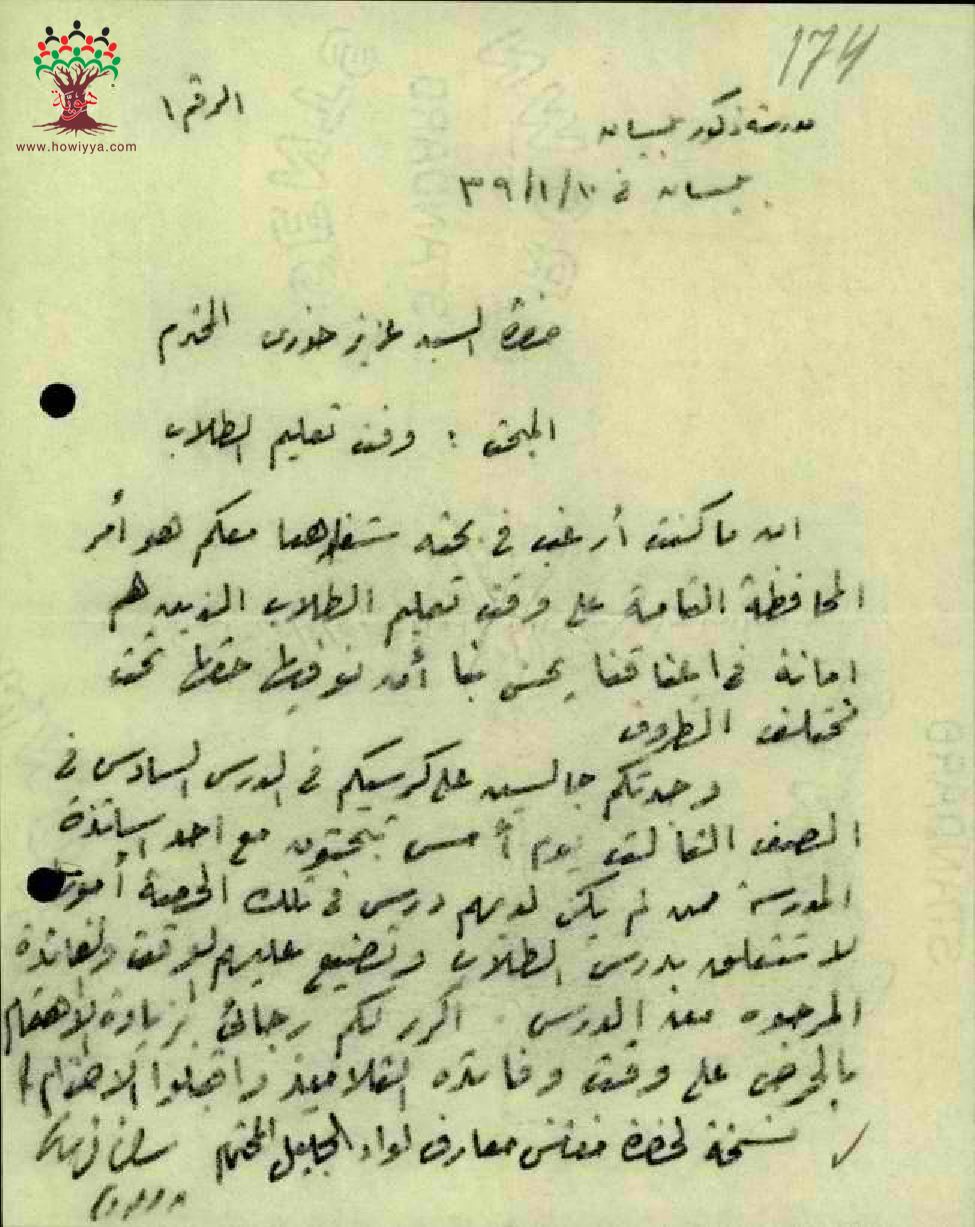 174
هوية
www.howiyya.com
الرقم ١
مدرسة ذكور بيسان
بيسان في ١٠/١/٣٩
حضرة السيد عزيز خوري المحترم
المبحث : وقت تعليم الطلاب
ان ما كنت أرغب في بحثه شفاها معكم هو أمر
المحافظة التامة على وقت تعليم الطلاب الذين هم
امانة في اعناقنا يحسن بنا أن نوفيها حقها تحت
مختلف الظروف
وجدتكم جالسين على كرسيكم في الدرس السادس في
الصف الثالث يوم أمس تبحثون مع احد اساتذة
المدرسة ممن لم يكن لديهم درس في تلك الحصة أمورا
لا تتعلق بدرس الطلاب وتضيع عليهم الوقت والفائدة
المرجوه من الدرس . اكرر لكم رجائي بزيادة الاهتمام
بالحرص على وقت وفائدة التلاميذ واقبلوا الاحترام
نسخة لحضرة مفتش معارف لواء الجليل المحترم